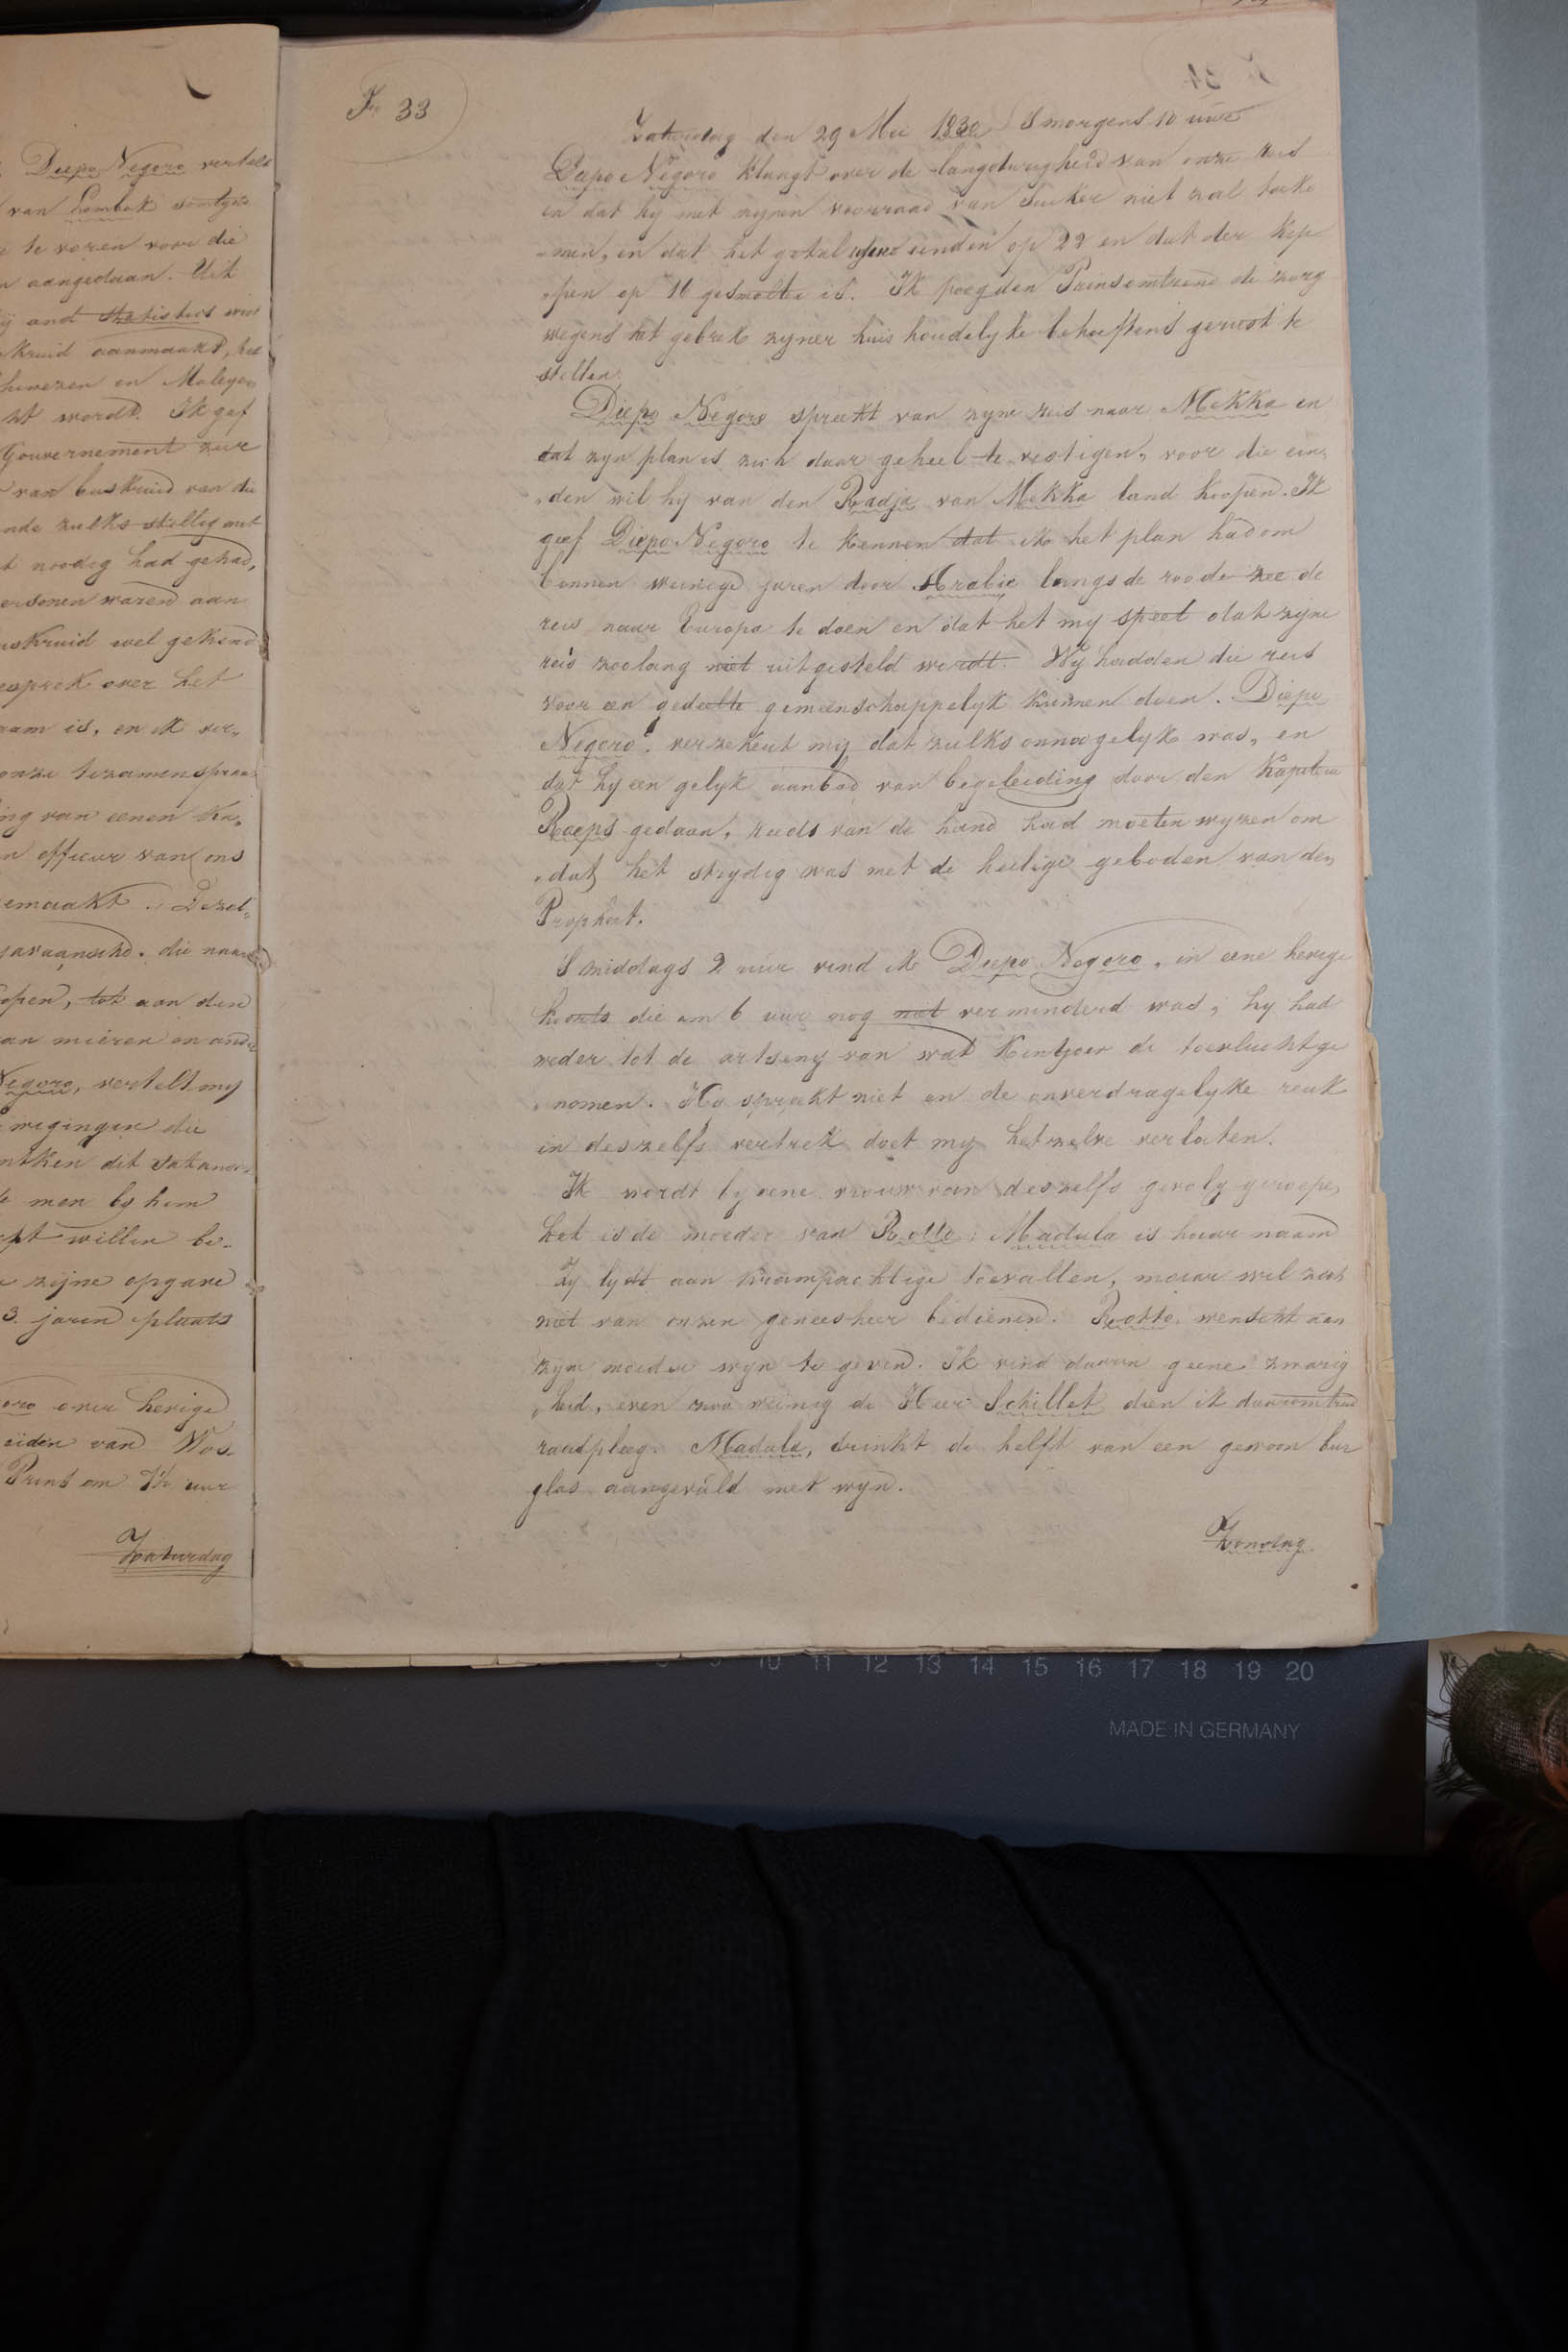 Diepo Negoro vertelt
van Lombok
te voren voor die
aangedaan. Uit
kruid aanmaakt, het
en Maleyen
wordt. Ik gaf
Gouvernement zeer
van buskruid van die
nde zulks stellig met
t noodig had gehad,
ersonen waren aan
uskruid wel gekend
esprek over het
aam is, en ik ver„
onze tezamenspraak
ng van eenen Ka„
n officier van ons
emaakt. Dezel„
javaansche. die naar
open, tot aan den
an mieren en ande
Negoro, vertelt my
wegingen die
ntken dit
e men by hem
pt willen be„
e zijne opgave
3. jaren plaats
oro over hevige
eiden van Wos„
Prins om 7½ uur
Zaturdag
Fo 33
Zaturdag den 29 Mei 1830 S morgens 10 uur
Diepo Negoro klaagt over de langdurigheid van onze reis
en dat hy met zynen voorraad van Suiker niet zal toeko
„men, en dat het getal zyner eenden op 22 en dat der kip
„pen op 16 gesmolten is. Ik poog den Prins omtrend de zorg
wegens het gebrek zyner huishoudelyke behoeftens gerust te
stellen.
Diepo Negoro spreekt van zyne reis naar Mekka en
dat zyn plan is zich daar geheel te vestigen, voor die ein„
„den wil hy van den Radja van Mekka land koopen. Ik
geef Diepo Negoro te kennen dat ik het plan had om
binnen weinige jaren door Arabie langs de roode zee de
reis naar Europa te doen en dat het my speet dat zyne
reis zoolang niet uitgesteld wordt. Wy hadden die reis
voor een gedeelte gemeenschappelyk kunnen doen. Diepo
Negoro, verzekert mij dat zulks onmogelyk was, en
dat hy een gelyk aanbod van begeleiding door den Kapitein
Roeps gedaan, reeds van de hand had moeten wyzen om
„dat het strydig was met de heilige geboden van den
Propheet.
S middags 2 uur vind ik Diepo Negoro, in eene hevige
koorts die om 6 uur nog niet verminderd was; hy had
weder tot de artseny van wat Kentjoer de toevluchtge
„nomen. Hy spreekt niet en de onverdragelyke reuk
in deszelfs vertrek doet my hetzelve verlaten.
Ik wordt by eene vrouw van deszelfs gevolg geroepen
het is de moeder van Rotto; Madula is haar naam
Zy lydt aan krampachtige toevallen, maar wil zich
niet van onzen geneesheer bedienen. Rotto wenscht aan
zyne moeder wyn te geven. Ik vind daarin geene zwarig
„heid, even zoo weinig de Heer Schillet dien ik daaromtrend
raadpleeg. Madula, drinkt de helft van een gewoon bier
glas aangevuld met wyn.
Zondag
10 11 12 13 14 15 16 17 18 19 20
MADE IN GERMANY